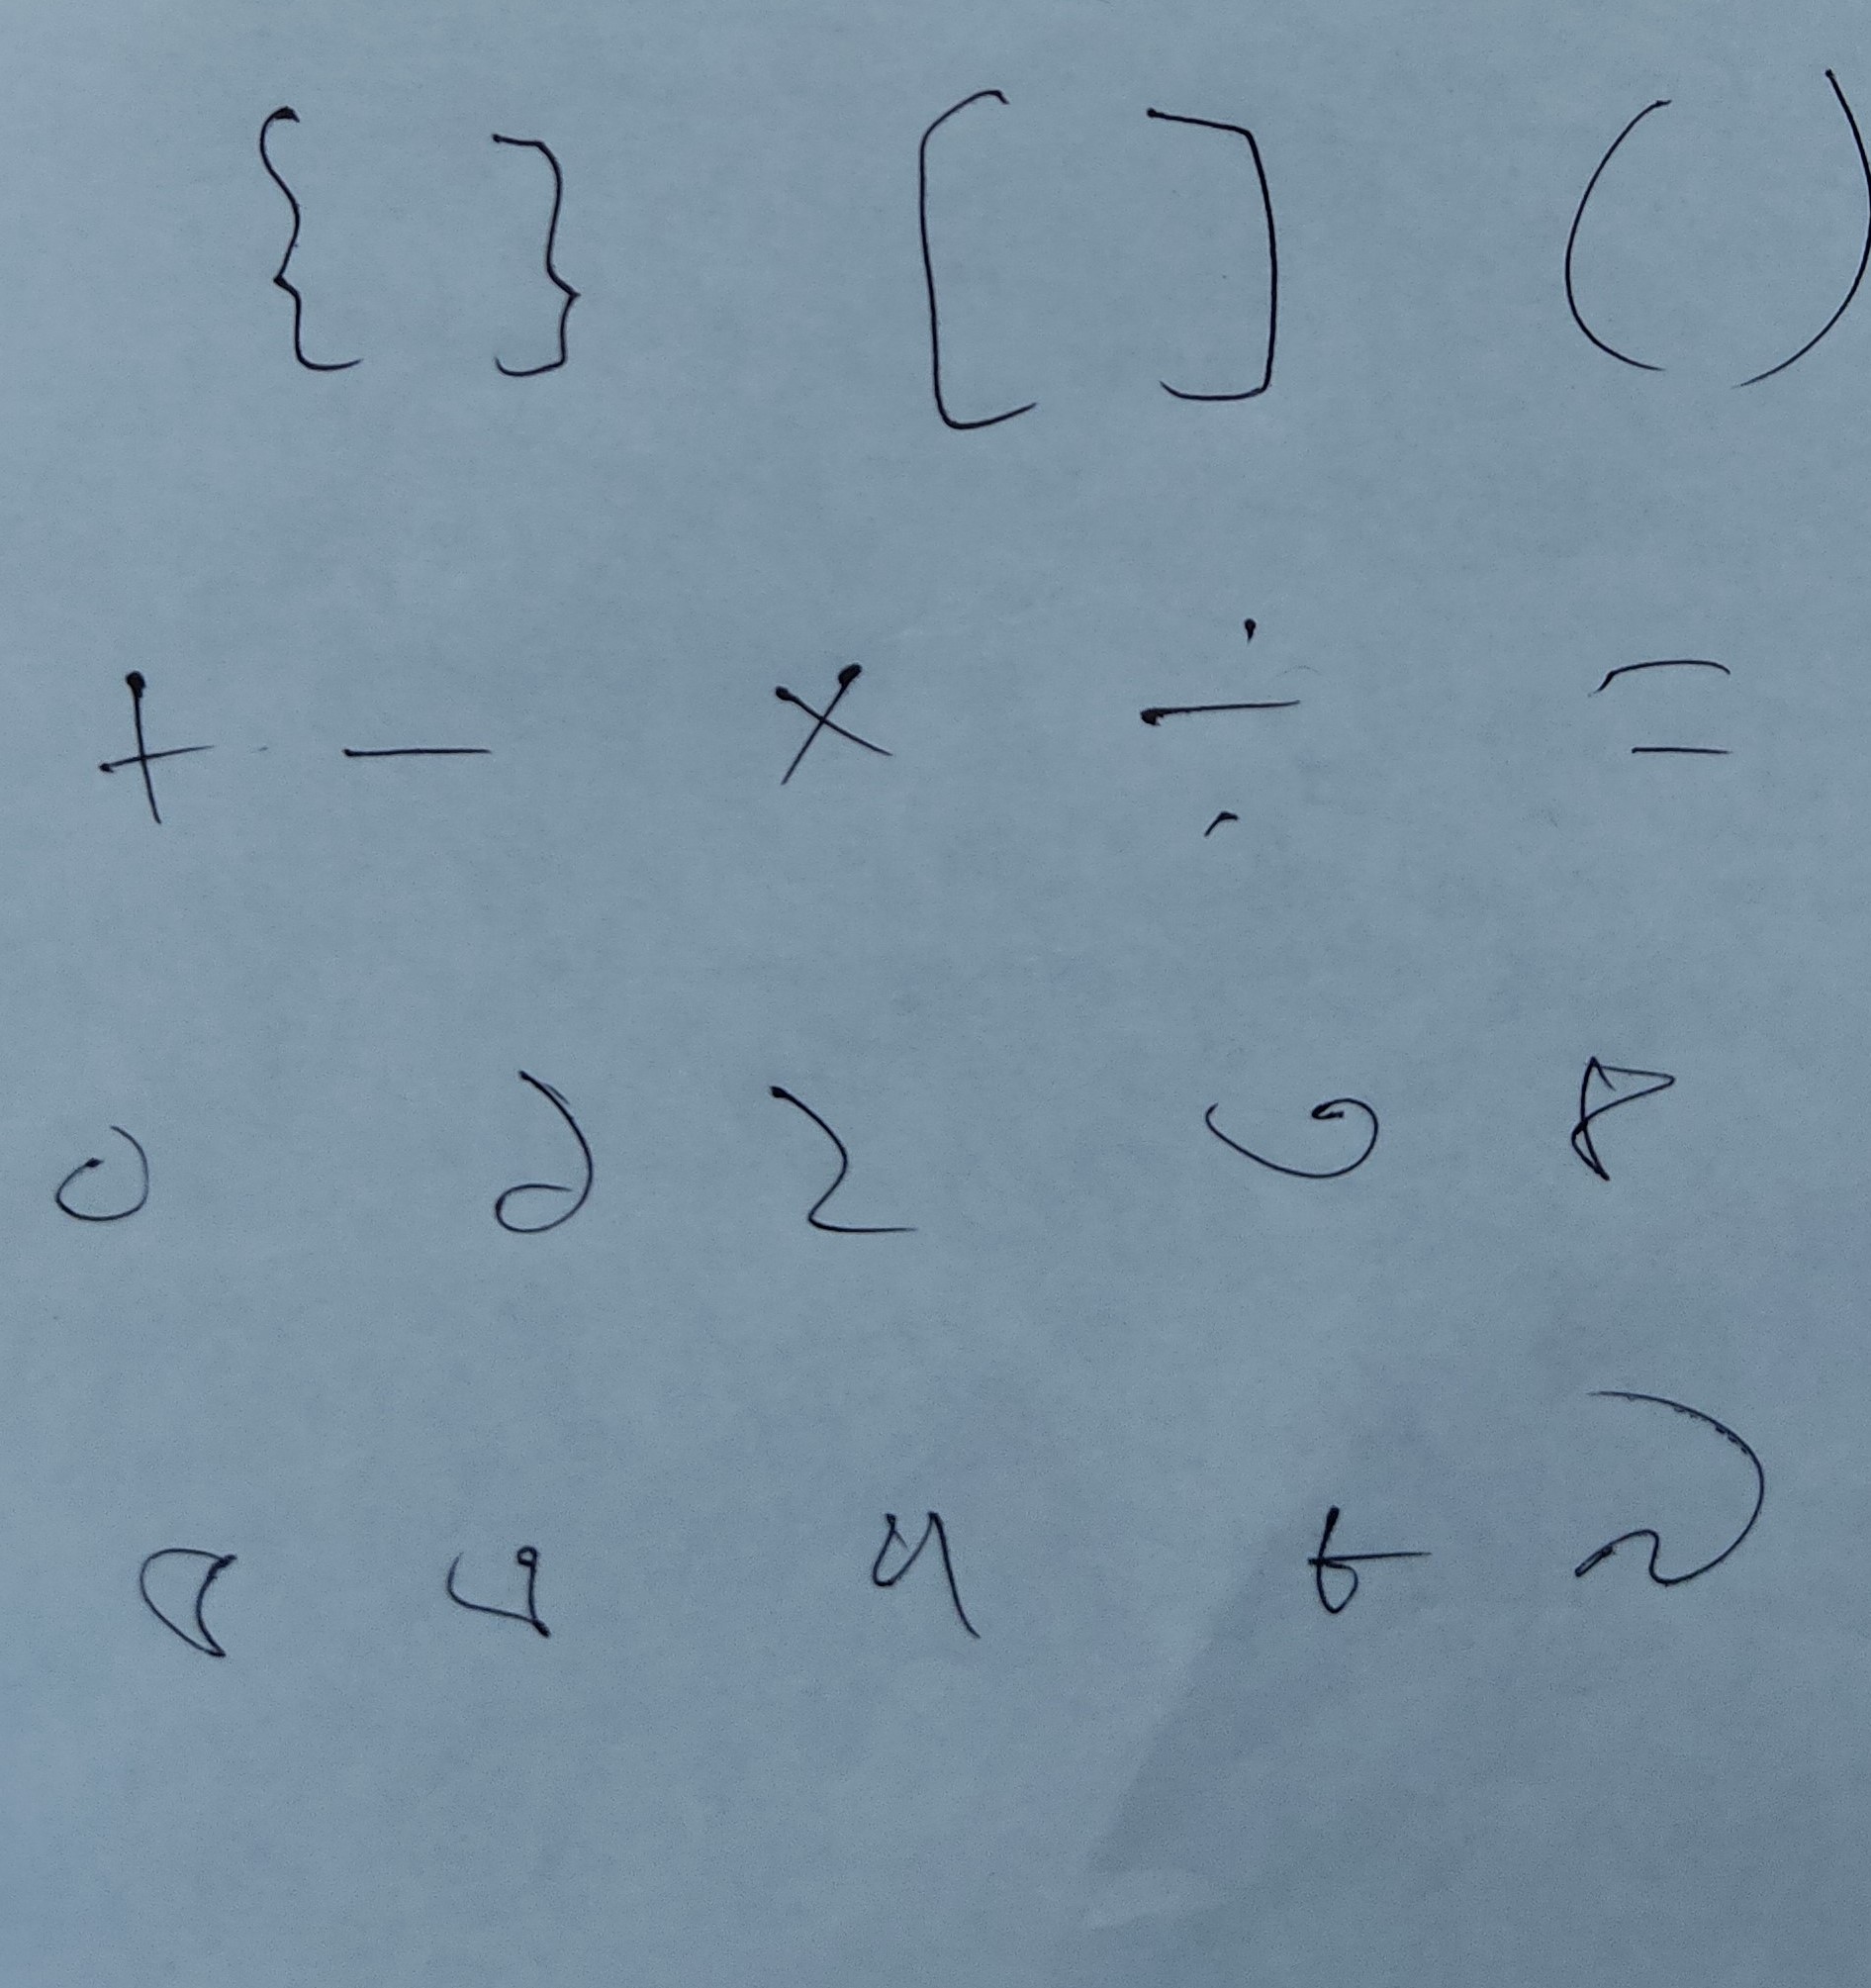 { } [ ] ( )
+ - × ÷ =
০ ১ ২ ৩ ৪
৫ ৬ ৭ ৮ ৯